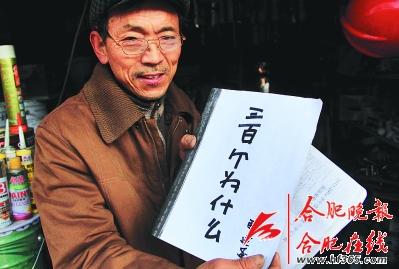 三百个为什么
合肥晚报
合肥在线
www.hf365.com